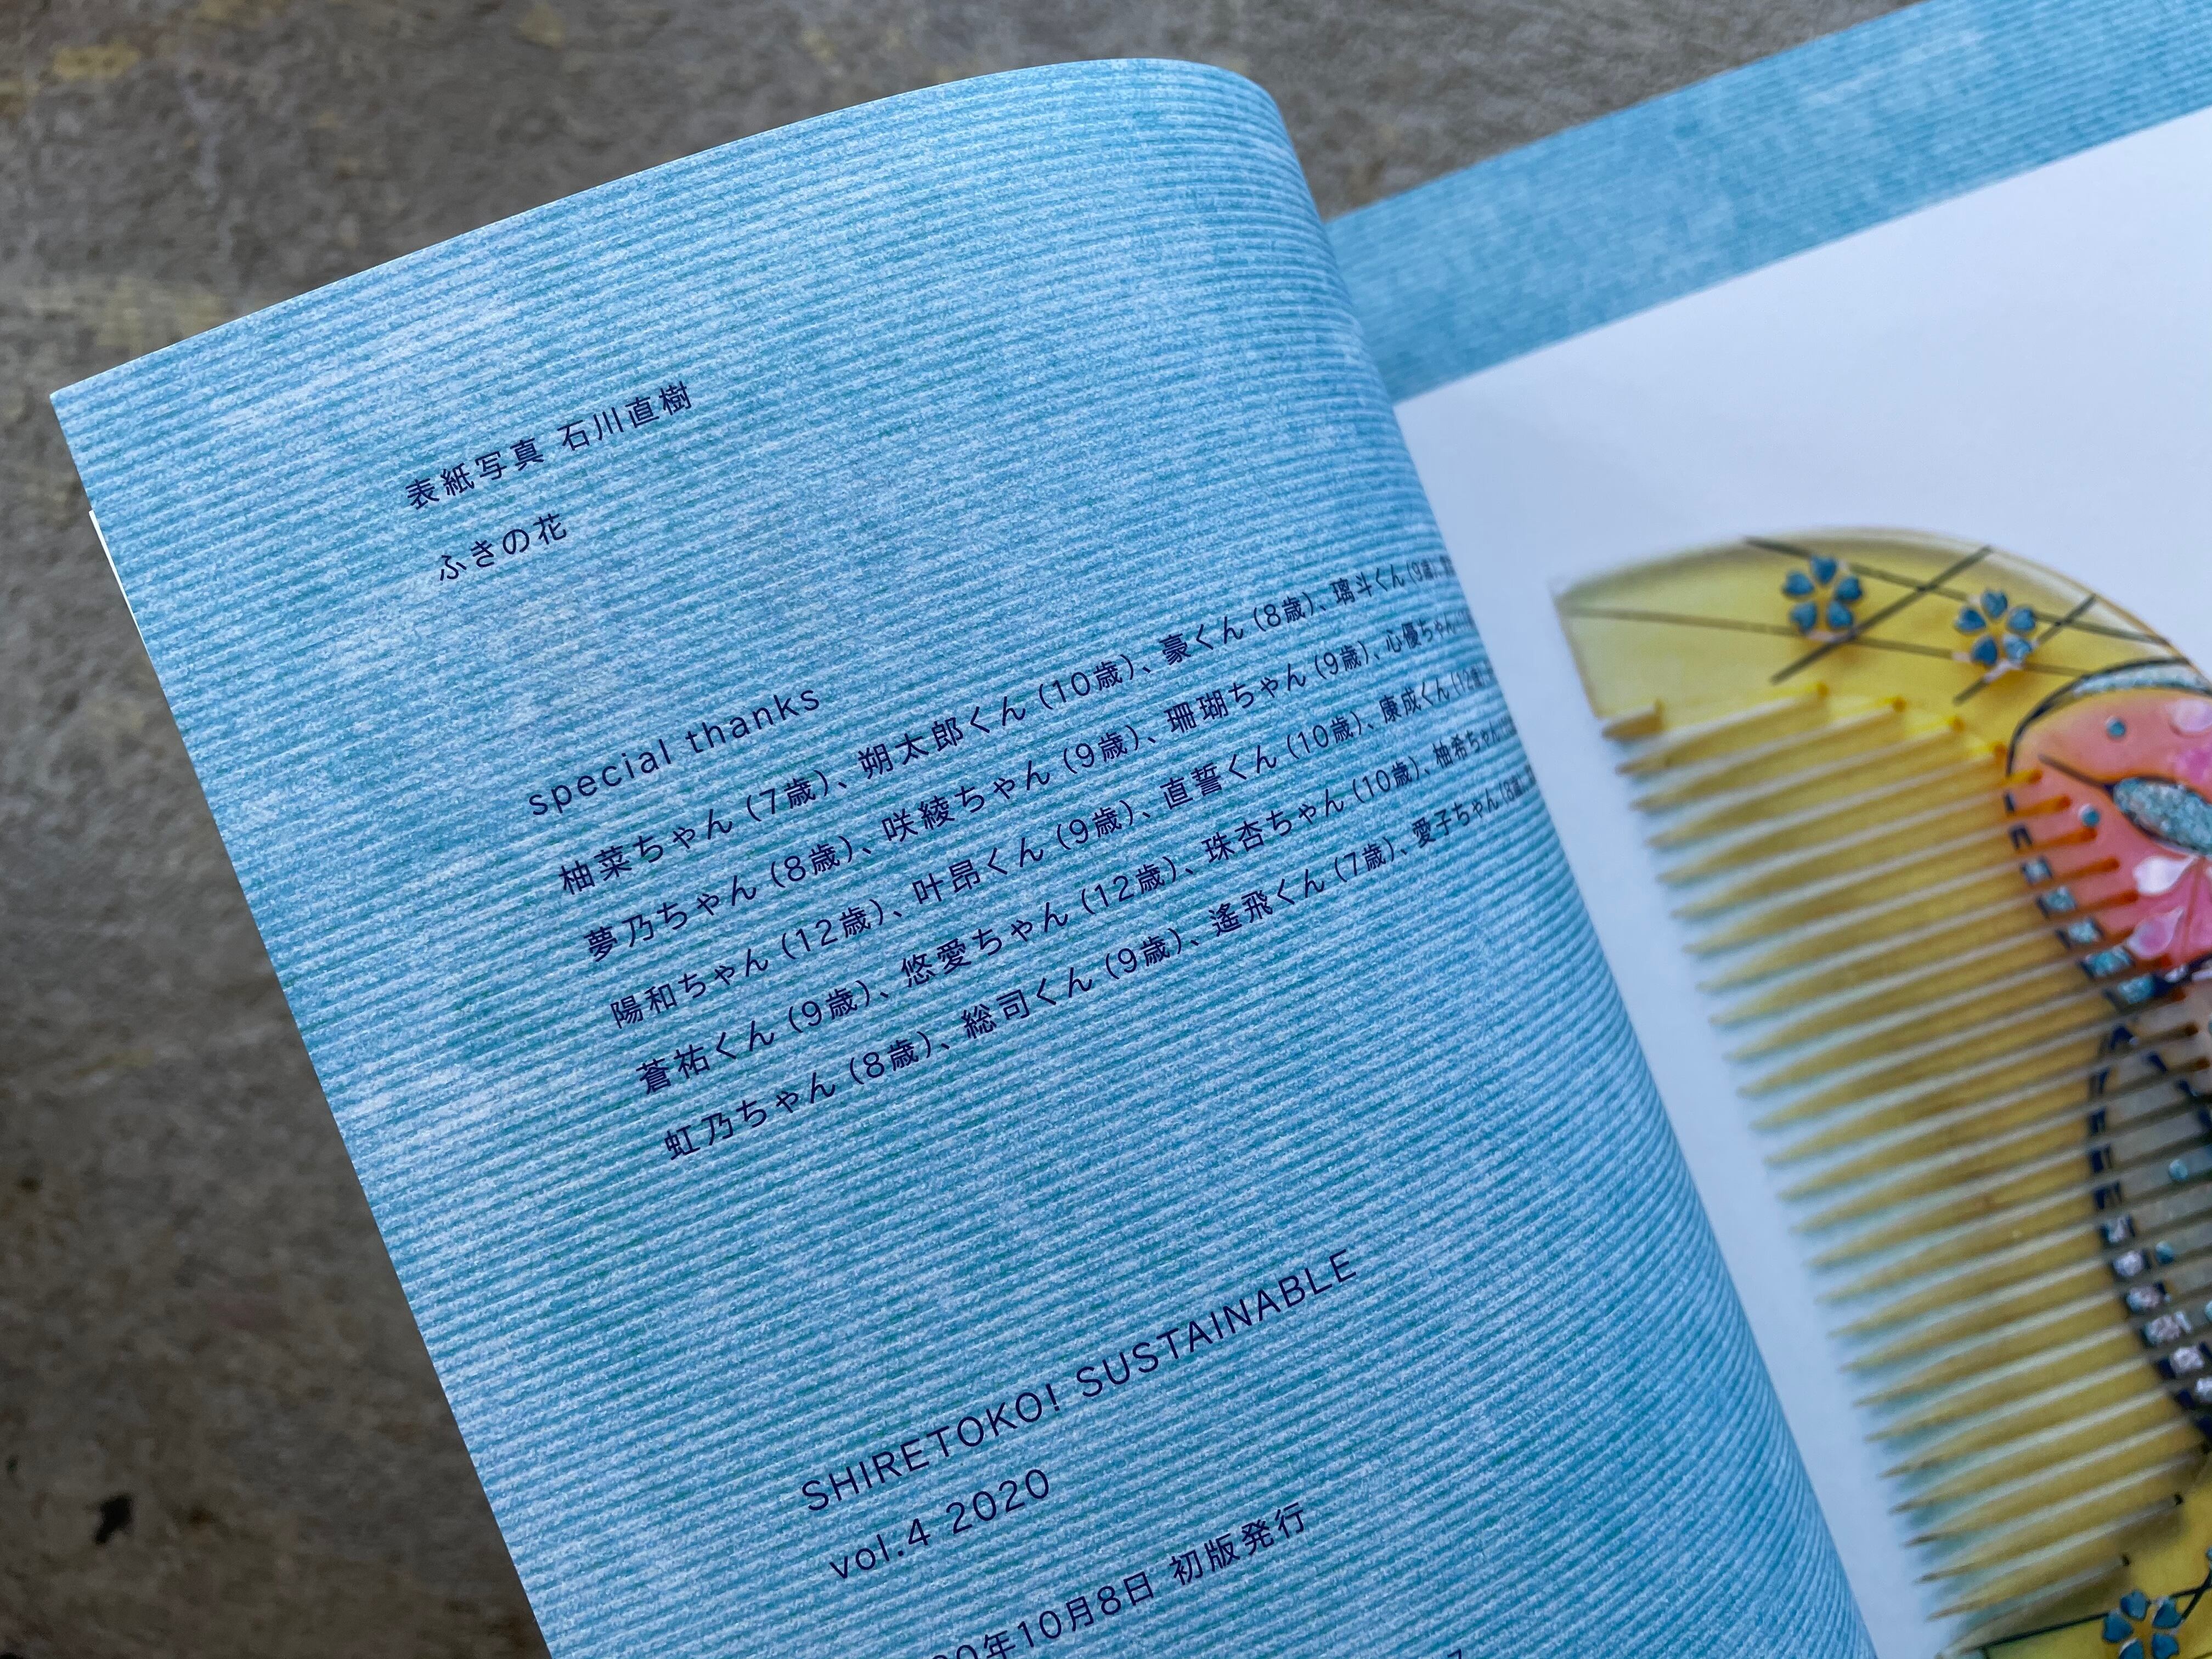 表紙写真 石川直樹
ふきの花
special thanks
柚菜ちゃん（7歳）、朔太郎くん（10歳）、豪くん（8歳）、璃斗くん（9歳）、
夢乃ちゃん（8歳）、咲綾ちゃん（9歳）、珊瑚ちゃん（9歳）、心優ちゃん
陽和ちゃん（12歳）、叶昂くん（9歳）、直誓くん（10歳）、康成くん（12歳）、
蒼祐くん（9歳）、悠愛ちゃん（12歳）、珠杏ちゃん（10歳）、柚希ちゃん
虹乃ちゃん（8歳）、総司くん（9歳）、遙飛くん（7歳）、愛子ちゃん（8歳）、
SHIRETOKO! SUSTAINABLE
vol.4 2020
年10月8日 初版発行